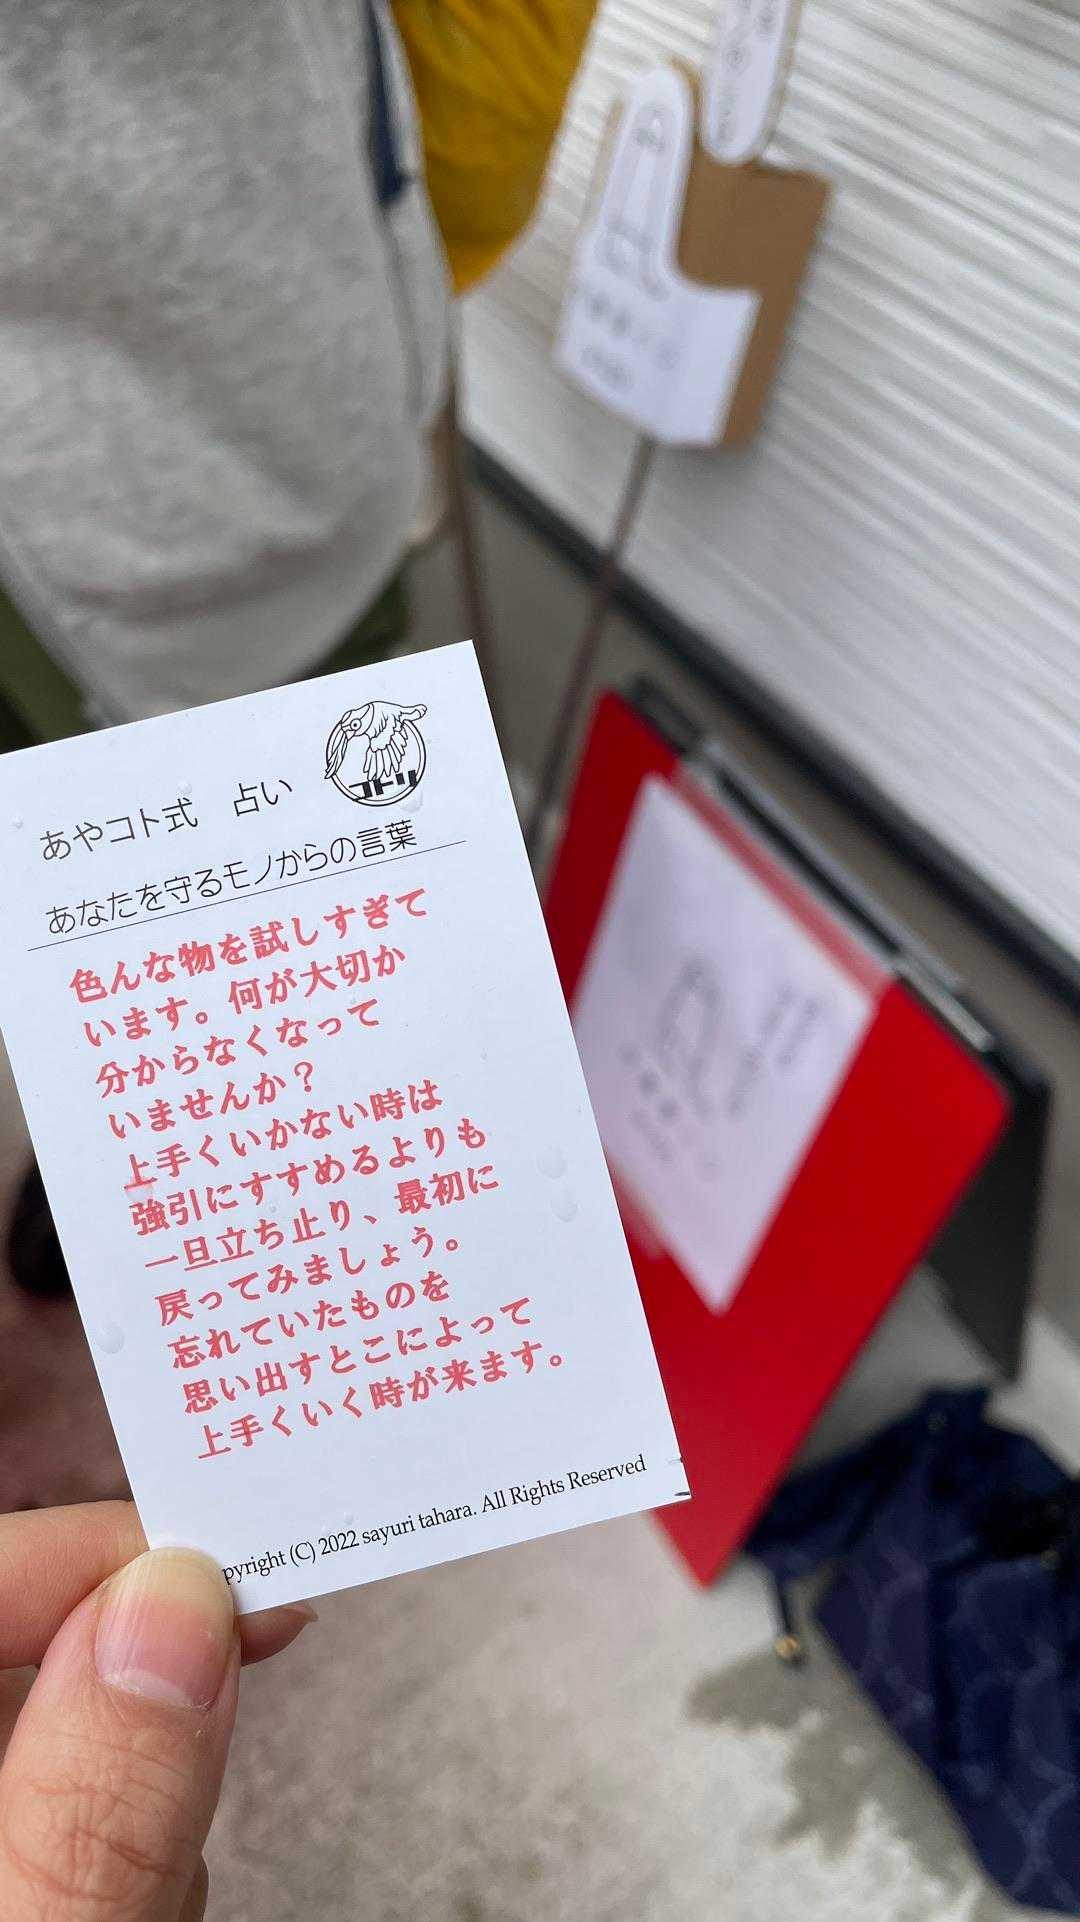 コトリ
あやコト式 占い
あなたを守るモノからの言葉
色んな物を試しすぎて
います。何が大切か
分からなくなって
いませんか？
上手くいかない時は
強引にすすめるよりも
一旦立ち止り、最初に
戻ってみましょう。
忘れていたものを
思い出すとこによって
上手くいく時が来ます。
pyright (C) 2022 sayuri tahara. All Rights Reserved